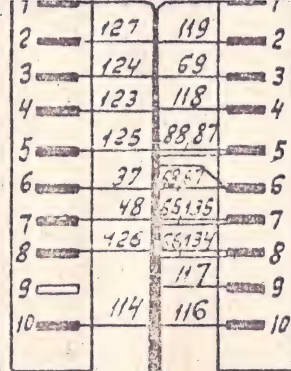 1 1
2 127 119 2
3 124 69 3
4 123 118 4
5 125 88,87 5
6 37 68,67 6
7 48 7
8 126 8
9 117 9
10 114 116 10